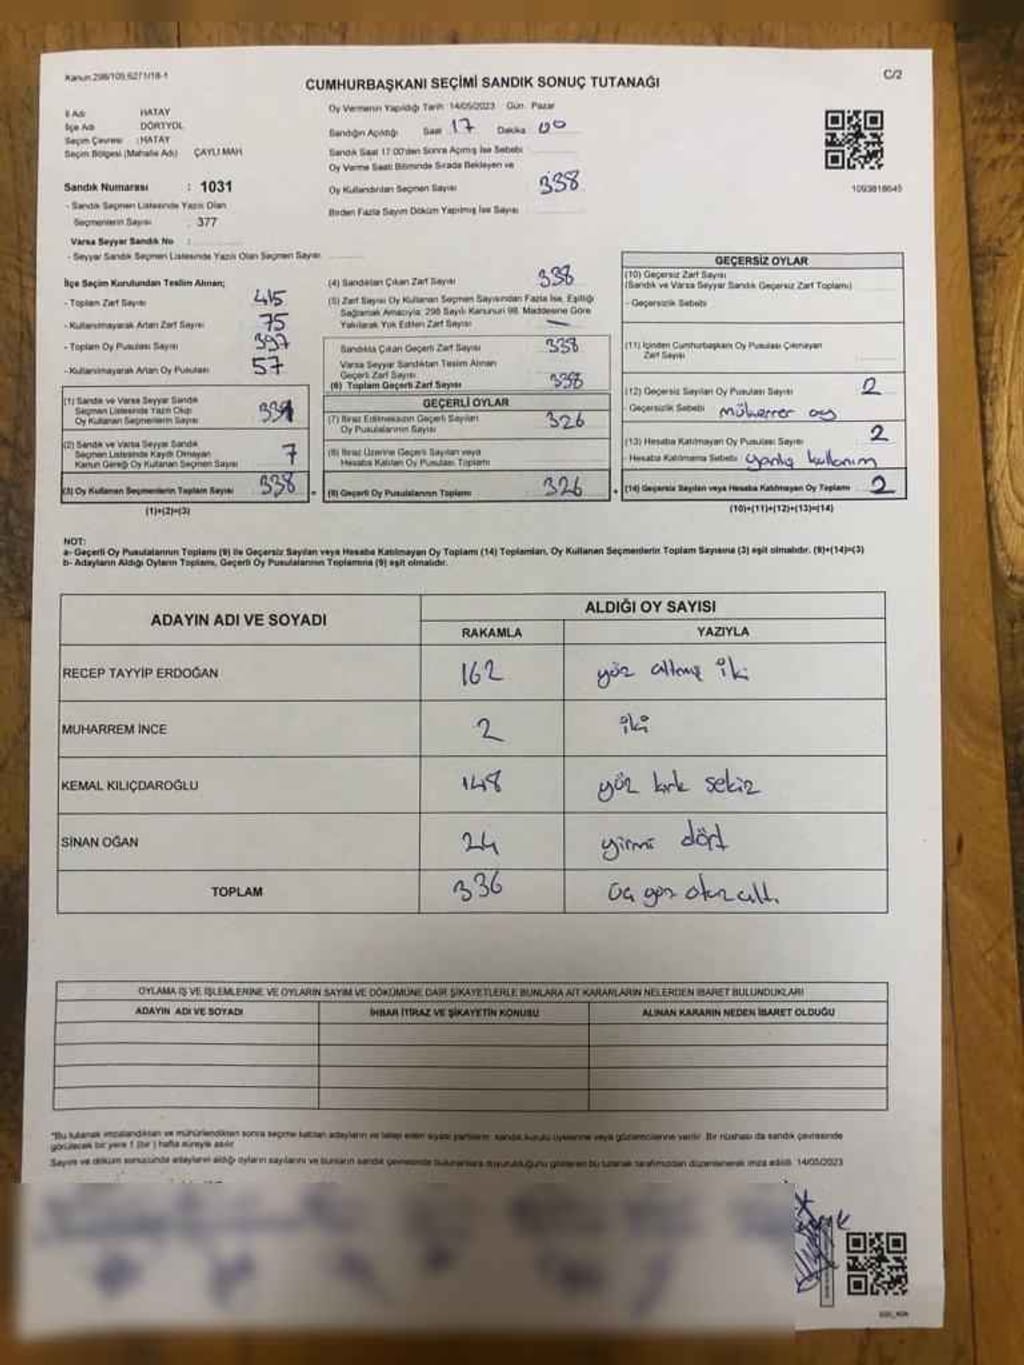 Kanun:298/109,6271/18-1
C/2
CUMHURBAŞKANI SEÇİMİ SANDIK SONUÇ TUTANAĞI
İl Adı HATAY
İlçe Adı DÖRTYOL
Seçim Çevresi :HATAY
Seçim Bölgesi (Mahalle Adı) ÇAYLI MAH
Sandık Numarası : 1031
- Sandık Seçmen Listesinde Yazılı Olan
Seçmenlerin Sayısı 377
Varsa Seyyar Sandık No :
- Seyyar Sandık Seçmen Listesinde Yazılı Olan Seçmen Sayısı
Oy Vermenin Yapıldığı Tarih 14/05/2023 Gün Pazar
Sandığın Açıldığı Saat 17 Dakika 00
Sandık Saat 17:00'den Sonra Açılmış İse Sebebi
Oy Verme Saati Bitiminde Sırada Bekleyen ve
Oy Kullandırılan Seçmen Sayısı 338
Birden Fazla Sayım Döküm Yapılmış İse Sayısı
1093818645
İlçe Seçim Kurulundan Teslim Alınan;
- Toplam Zarf Sayısı 415
- Kullanılmayarak Artan Zarf Sayısı 75
- Toplam Oy Pusulası Sayısı 397
- Kullanılmayarak Artan Oy Pusulası 57
(1) Sandık ve Varsa Seyyar Sandık
Seçmen Listesinde Yazılı Olup
Oy Kullanan Seçmenlerin Sayısı
(2) Sandık ve Varsa Seyyar Sandık
Seçmen Listesinde Kaydı Olmayan
Kanun Gereği Oy Kullanan Seçmen Sayısı 7
(3) Oy Kullanan Seçmenlerin Toplam Sayısı 338
(1)+(2)=(3)
(4) Sandıktan Çıkan Zarf Sayısı 338
(5) Zarf Sayısı Oy Kullanan Seçmen Sayısından Fazla İse, Eşitliği
Sağlamak Amacıyla, 298 Sayılı Kanunun 98. Maddesine Göre
Yakılarak Yok Edilen Zarf Sayısı
Sandıkta Çıkan Geçerli Zarf Sayısı 338
Varsa Seyyar Sandıktan Teslim Alınan
Geçerli Zarf Sayısı
(6) Toplam Geçerli Zarf Sayısı 338
GEÇERLİ OYLAR
(7) İtiraz Edilmeksizin Geçerli Sayılan
Oy Pusulalarının Sayısı 326
(8) İtiraz Üzerine Geçerli Sayılan veya
Hesaba Katılan Oy Pusulası Toplamı
(9) Geçerli Oy Pusulalarının Toplamı 326
GEÇERSİZ OYLAR
(10) Geçersiz Zarf Sayısı
(Sandık ve Varsa Seyyar Sandık Geçersiz Zarf Toplamı)
- Geçersizlik Sebebi
(11) İçinden Cumhurbaşkanı Oy Pusulası Çıkmayan
Zarf Sayısı
(12) Geçersiz Sayılan Oy Pusulası Sayısı 2
- Geçersizlik Sebebi mükerrer oy
(13) Hesaba Katılmayan Oy Pusulası Sayısı 2
- Hesaba Katılmama Sebebi yanlış kullanım
(14) Geçersiz Sayılan veya Hesaba Katılmayan Oy Toplamı 2
(10)+(11)+(12)+(13)=(14)
NOT:
a- Geçerli Oy Pusulalarının Toplamı (9) ile Geçersiz Sayılan veya Hesaba Katılmayan Oy Toplamı (14) Toplamları, Oy Kullanan Seçmenlerin Toplam Sayısına (3) eşit olmalıdır. (9)+(14)=(3)
b- Adayların Aldığı Oyların Toplamı, Geçerli Oy Pusulalarının Toplamına (9) eşit olmalıdır.
ADAYIN ADI VE SOYADI
ALDIĞI OY SAYISI
RAKAMLA YAZIYLA
RECEP TAYYİP ERDOĞAN 162 yüz altmış iki
MUHARREM İNCE 2 iki
KEMAL KILIÇDAROĞLU 148 yüz kırk sekiz
SİNAN OĞAN 24 yirmi dört
TOPLAM 336 üç yüz otuz altı
OYLAMA İŞ VE İŞLEMLERİNE VE OYLARIN SAYIM VE DÖKÜMÜNE DAİR ŞİKAYETLERLE BUNLARA AİT KARARLARIN NELERDEN İBARET BULUNDUKLARI
ADAYIN ADI VE SOYADI İHBAR İTİRAZ VE ŞİKAYETİN KONUSU ALINAN KARARIN NEDEN İBARET OLDUĞU
*Bu tutanak imzalandıktan ve mühürlendikten sonra seçime katılan adayların ve talep eden siyasi partilerin sandık kurulu üyelerine veya gözlemcilerine verilir. Bir nüshası da sandık çevresinde
görülecek bir yere 1 (bir) hafta süreyle asılır.
Sayım ve döküm sonucunda adayların aldığı oyların sayılarını ve bunların sandık çevresinde bulunanlara duyurulduğunu gösteren bu tutanak tarafımızdan düzenlenerek imza edildi. 14/05/2023